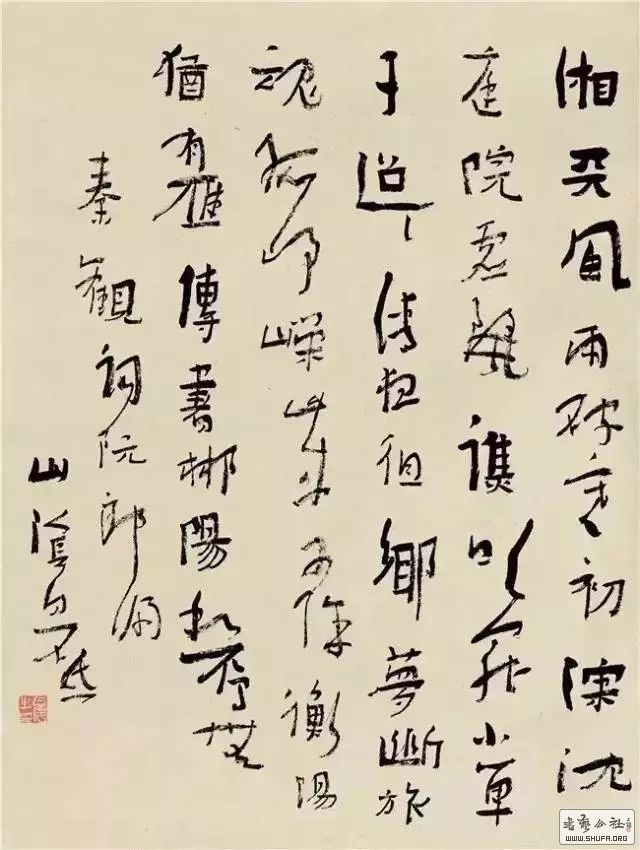 湘天風雨破寒初深沈
庭院虛麗譙吹罷小單
于迢〻清夜徂鄉夢斷旅
魂孤崢嶸歲又除衡陽
猶有雁傳書郴陽和雁無
秦觀詞阮郎歸
山陰
書藝公社
WWW.SHUFA.ORG